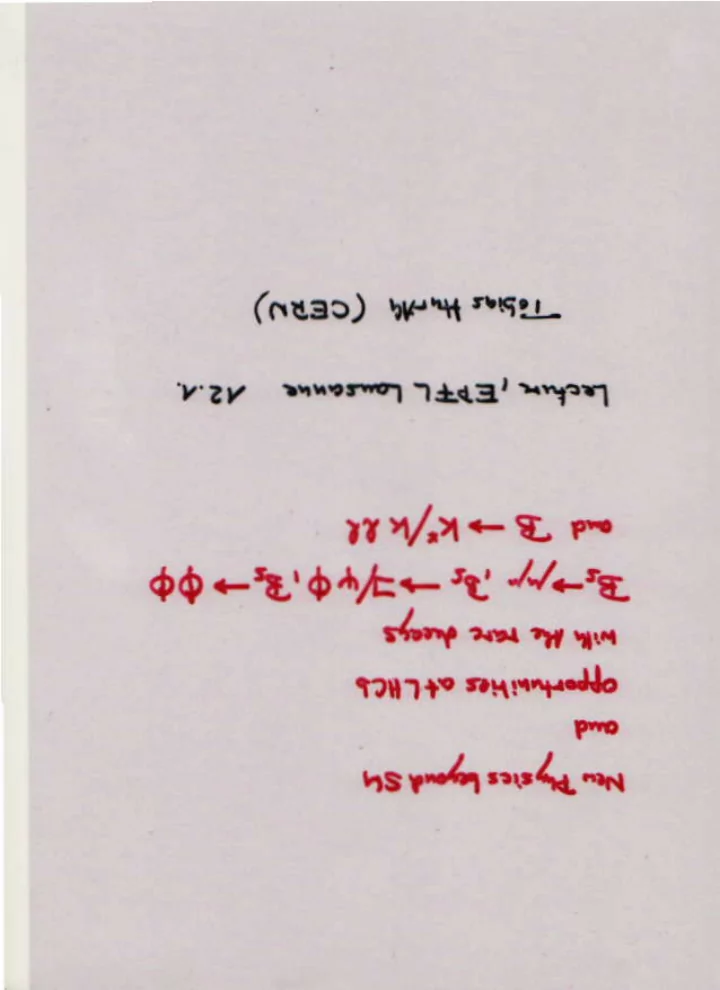 New Physics beyond SM
and
opportunities at LHCb
with the rare decays
Bs → μμ, Bs → J/ψ ϕ, Bs → ϕϕ
and B → K*/K ll
Lecture, EPFL Lausanne 12.1.
Tobias Hurth (CERN)